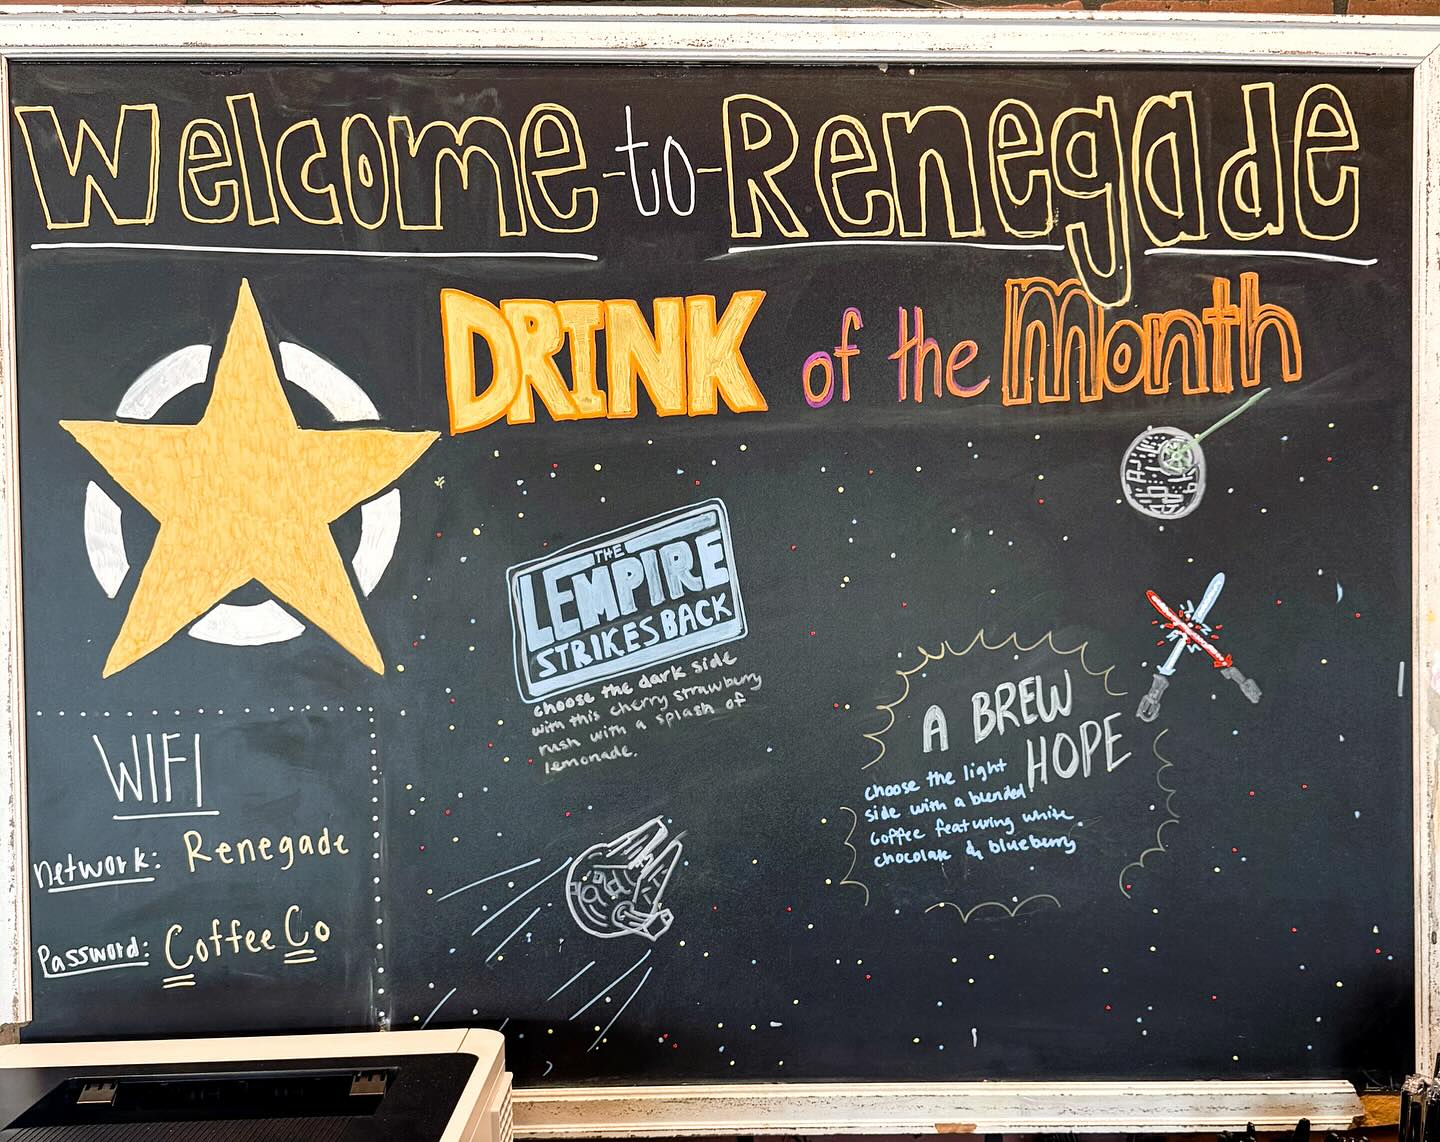 Welcome -to- Renegade
DRINK of the Month
THE
LEMPIRE
STRIKES BACK
choose the dark side
with this cherry strawberry
rush with a splash of
lemonade.
A BREW
HOPE
choose the light
side with a blended
coffee featuring white
chocolate & blueberry
WIFI
network: Renegade
Password: CoffeeCo